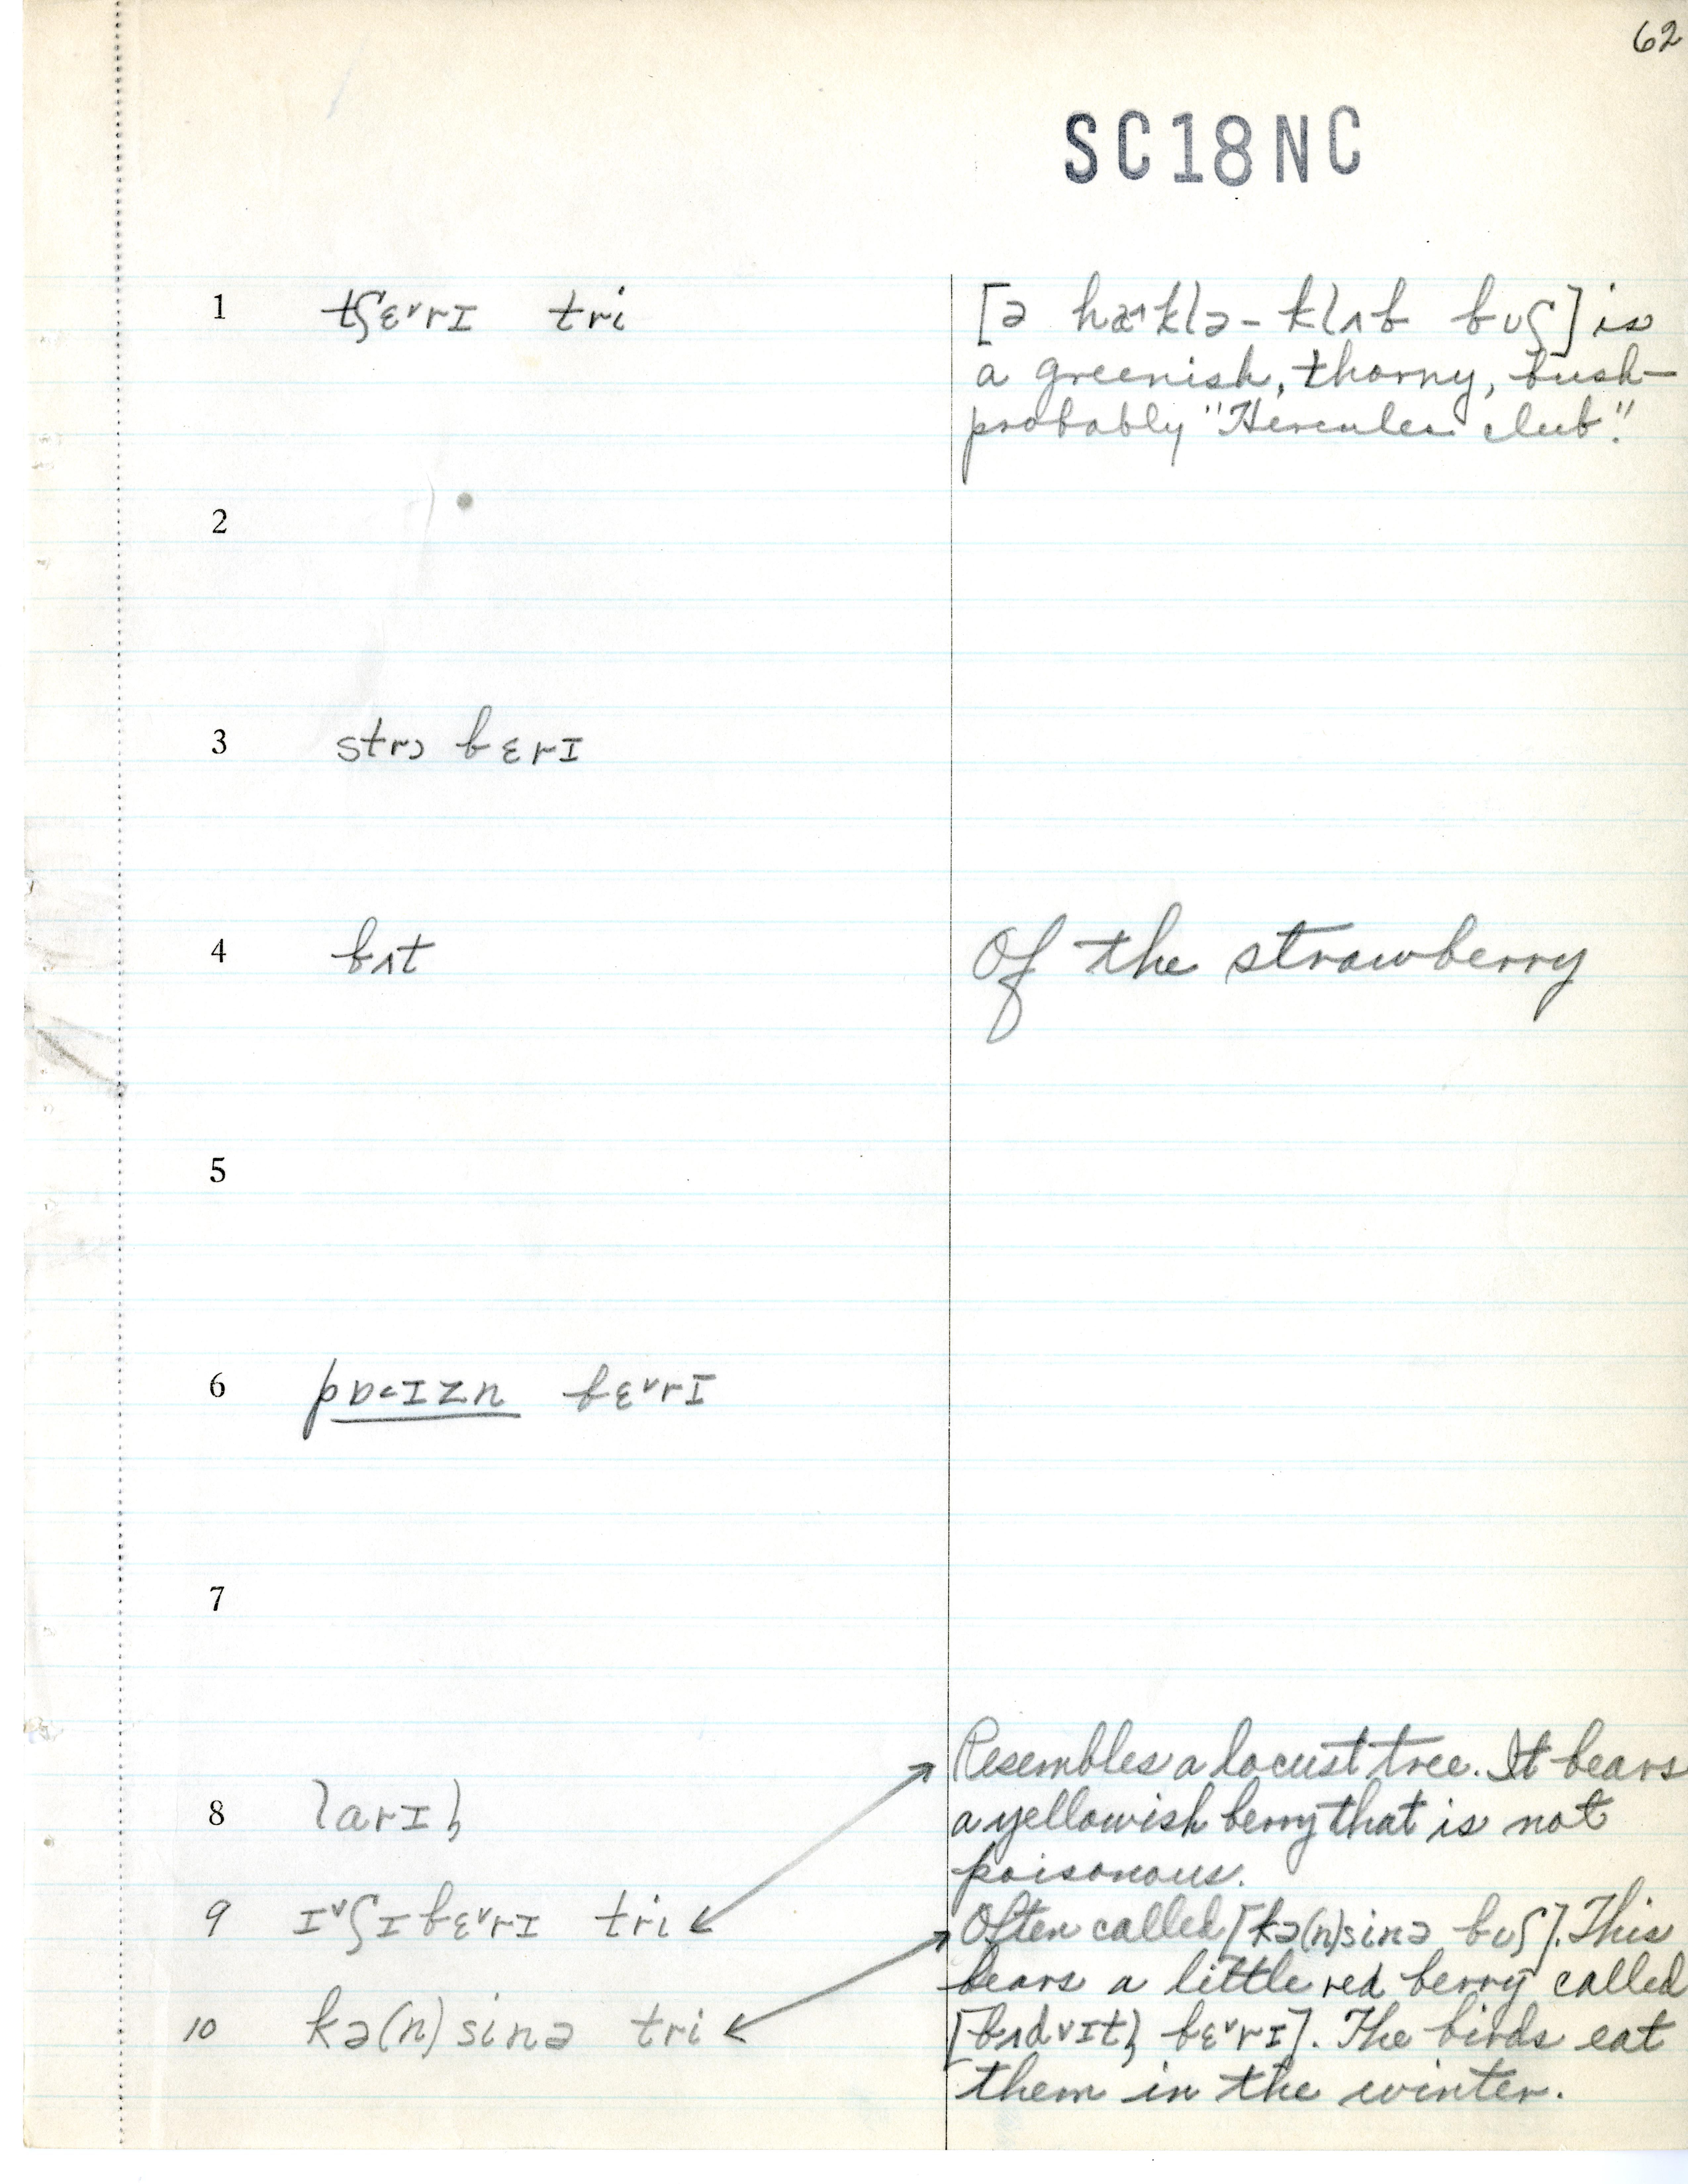 62
SC18NC
1 tʃɛ˅rɪ tri
[ə hɑ˄klə-klʌb bʊʃ] is
a greenish, thorny, bush—
probably "Hercules club."
2
3 strɔ bɛrɪ
4 bʌt
Of the strawberry
5
6 pɒ˂ɪzn bɛ˅rɪ
7
Resembles a locust tree. It bears
8
a yellowish berry that is not
poisonous.
9 ɪ˅ʃɪbɛ˅rɪ tri
Often called [kə(n)sinə bʊʃ]. This
bears a little red berry called
10 kə(n)sinə tri
bɛ˅rɪ]. The birds eat
them in the winter.